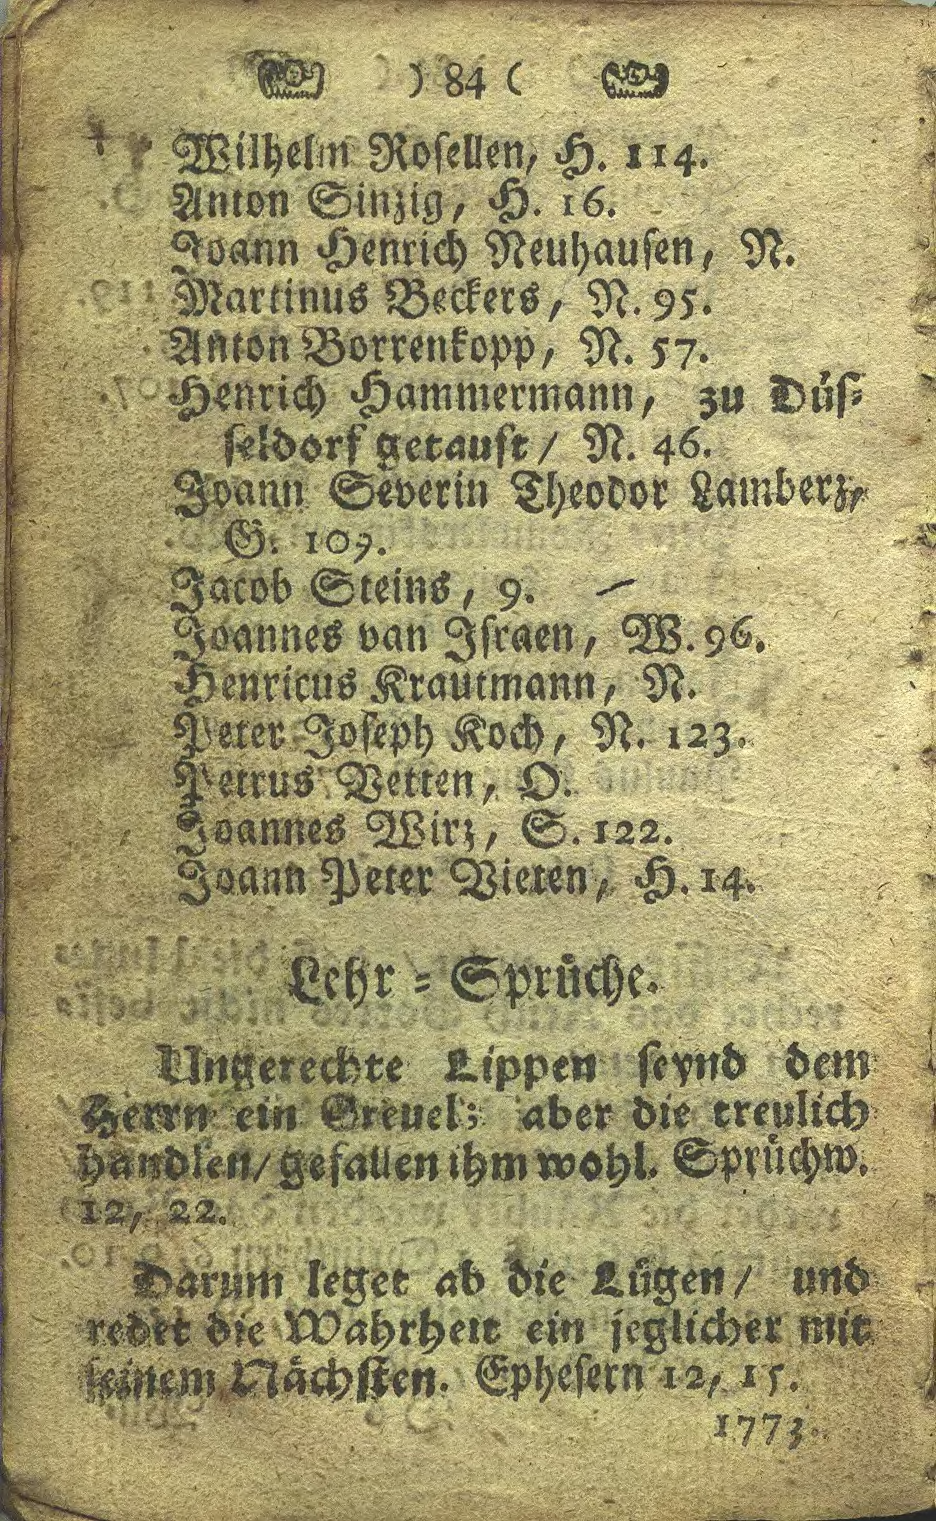 ) 84 (
Wilhelm Rosellen, H. 114.
Anton Sinzig, H. 16.
Joann Henrich Neuhausen, N.
Martinus Beckers, N. 95.
Anton Borrenkopp, N. 57.
Henrich Hammermann, zu Düs=
seldorf getauft / N. 46.
Joann Severin Theodor Lamberz,
G. 109.
Jacob Steins, 9. —
Joannes van Israen, W. 96.
Henricus Krautmann, N.
Peter Joseph Koch, N. 123.
Petrus Vetten, O.
Joannes Wirz, S. 122.
Joann Peter Vieten, H. 14.
Lehr = Sprüche.
Ungerechte Lippen seynd dem
Herrn ein Greuel; aber die treulich
handlen / gefallen ihm wohl. Sprüchw.
12, 22.
Darum leget ab die Lügen / und
redet die Wahrheit ein jeglicher mit
seinem Nächsten. Ephesern 12, 15.
1773.